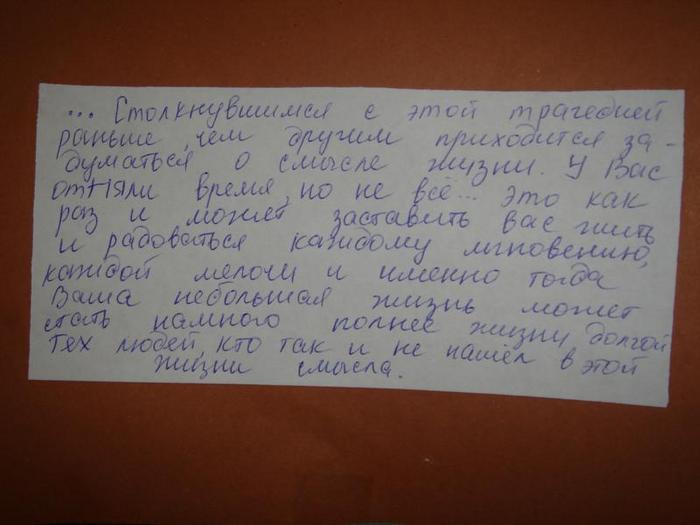 ... Столкнувшимся с этой трагедией
раньше, чем другим приходится за-
думаться о смысле жизни. У Вас
отняли время, но не всё... Это как
раз и может заставить вас жить
и радоваться каждому мгновению,
каждой мелочи и именно тогда
Ваша небольшая жизнь может
стать намного полнее жизни долгой
тех людей, кто так и не нашёл в этой
жизни смысла.